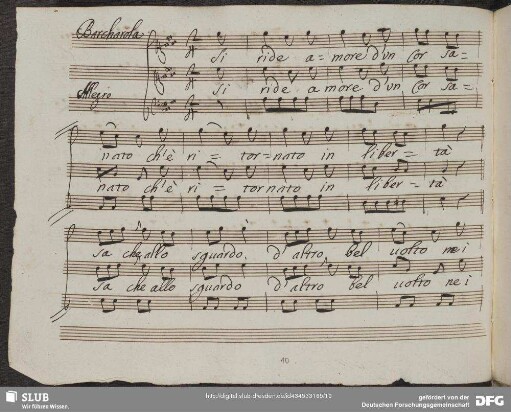 Barcharola
Si ride a=more d'un Cor sa=
Allegro
Si ride amore d'un Cor sa=
nato ch'è ri = tor=nato in liber = tà
nato ch'è ri = tornato in liber = tà
sa che allo sguardo, d'altro bel uolto nei
sa che allo sguardo d'altro bel uolto nei
40
SLUB
Wir führen Wissen.
gefördert von der
Deutschen Forschungsgemeinschaft
DFG